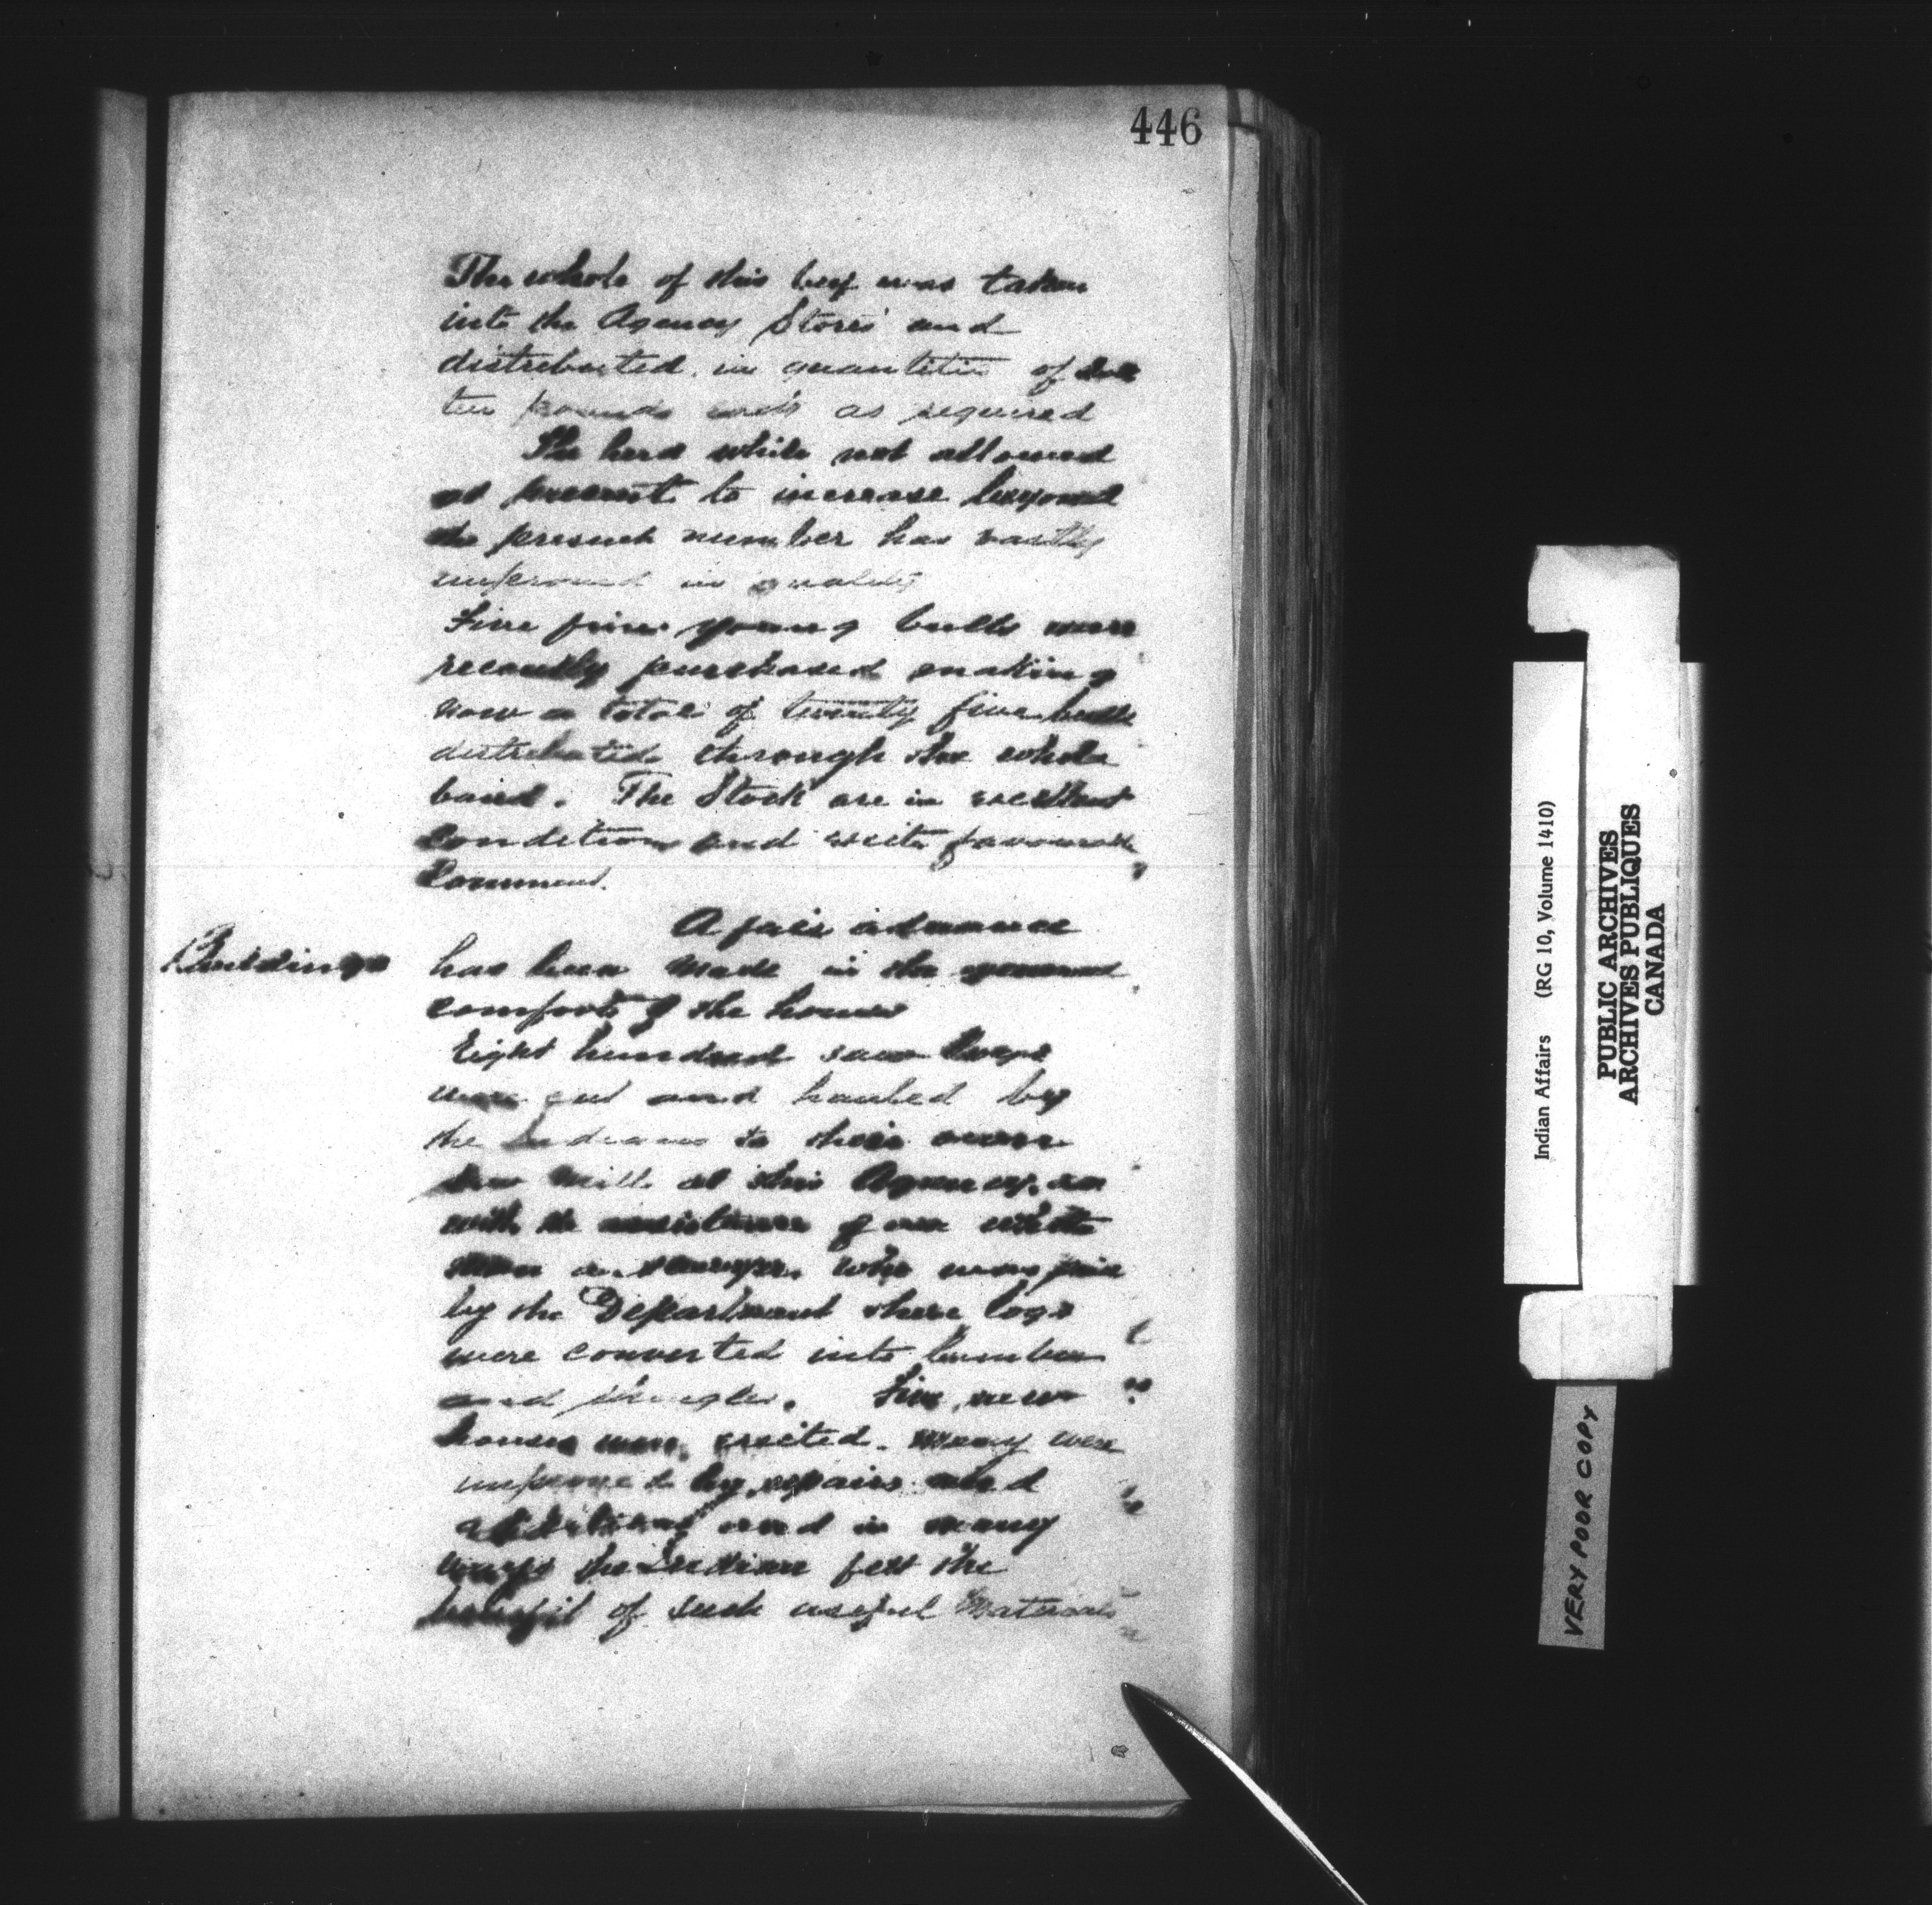 446
The whole of this beef was taken
into the Agency Stores and
distributed in quantities of
ten pounds each as required
The herd while not allowed
at present to increase beyond
the present number has vastly
improved in quality
Five fine young bulls were
recently purchased making
now a total of twenty five bulls
distributed through the whole
band. The Stock are in excellent
Condition and excite favourable
Comment.
A fair advance
Buildings
has been made in the general
comfort of the houses
Eight hundred saw logs
were cut and hauled by
the Indians to their own
Saw Mill at this Agency, and
with the assistance of one white
man a sawyer, who was paid
by the Department these logs
were converted into lumber
and shingles. Five new
houses were erected. Many were
improved by repairs and
additions and in many
ways the Indian felt the
benefit of such useful Materials
Indian Affairs (RG 10, Volume 1410)
PUBLIC ARCHIVES
ARCHIVES PUBLIQUES
CANADA
VERY POOR COPY